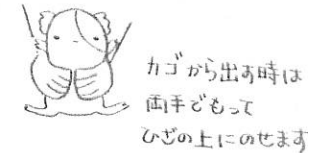 カゴから出す時は
両手でもって
ひざの上にのせます